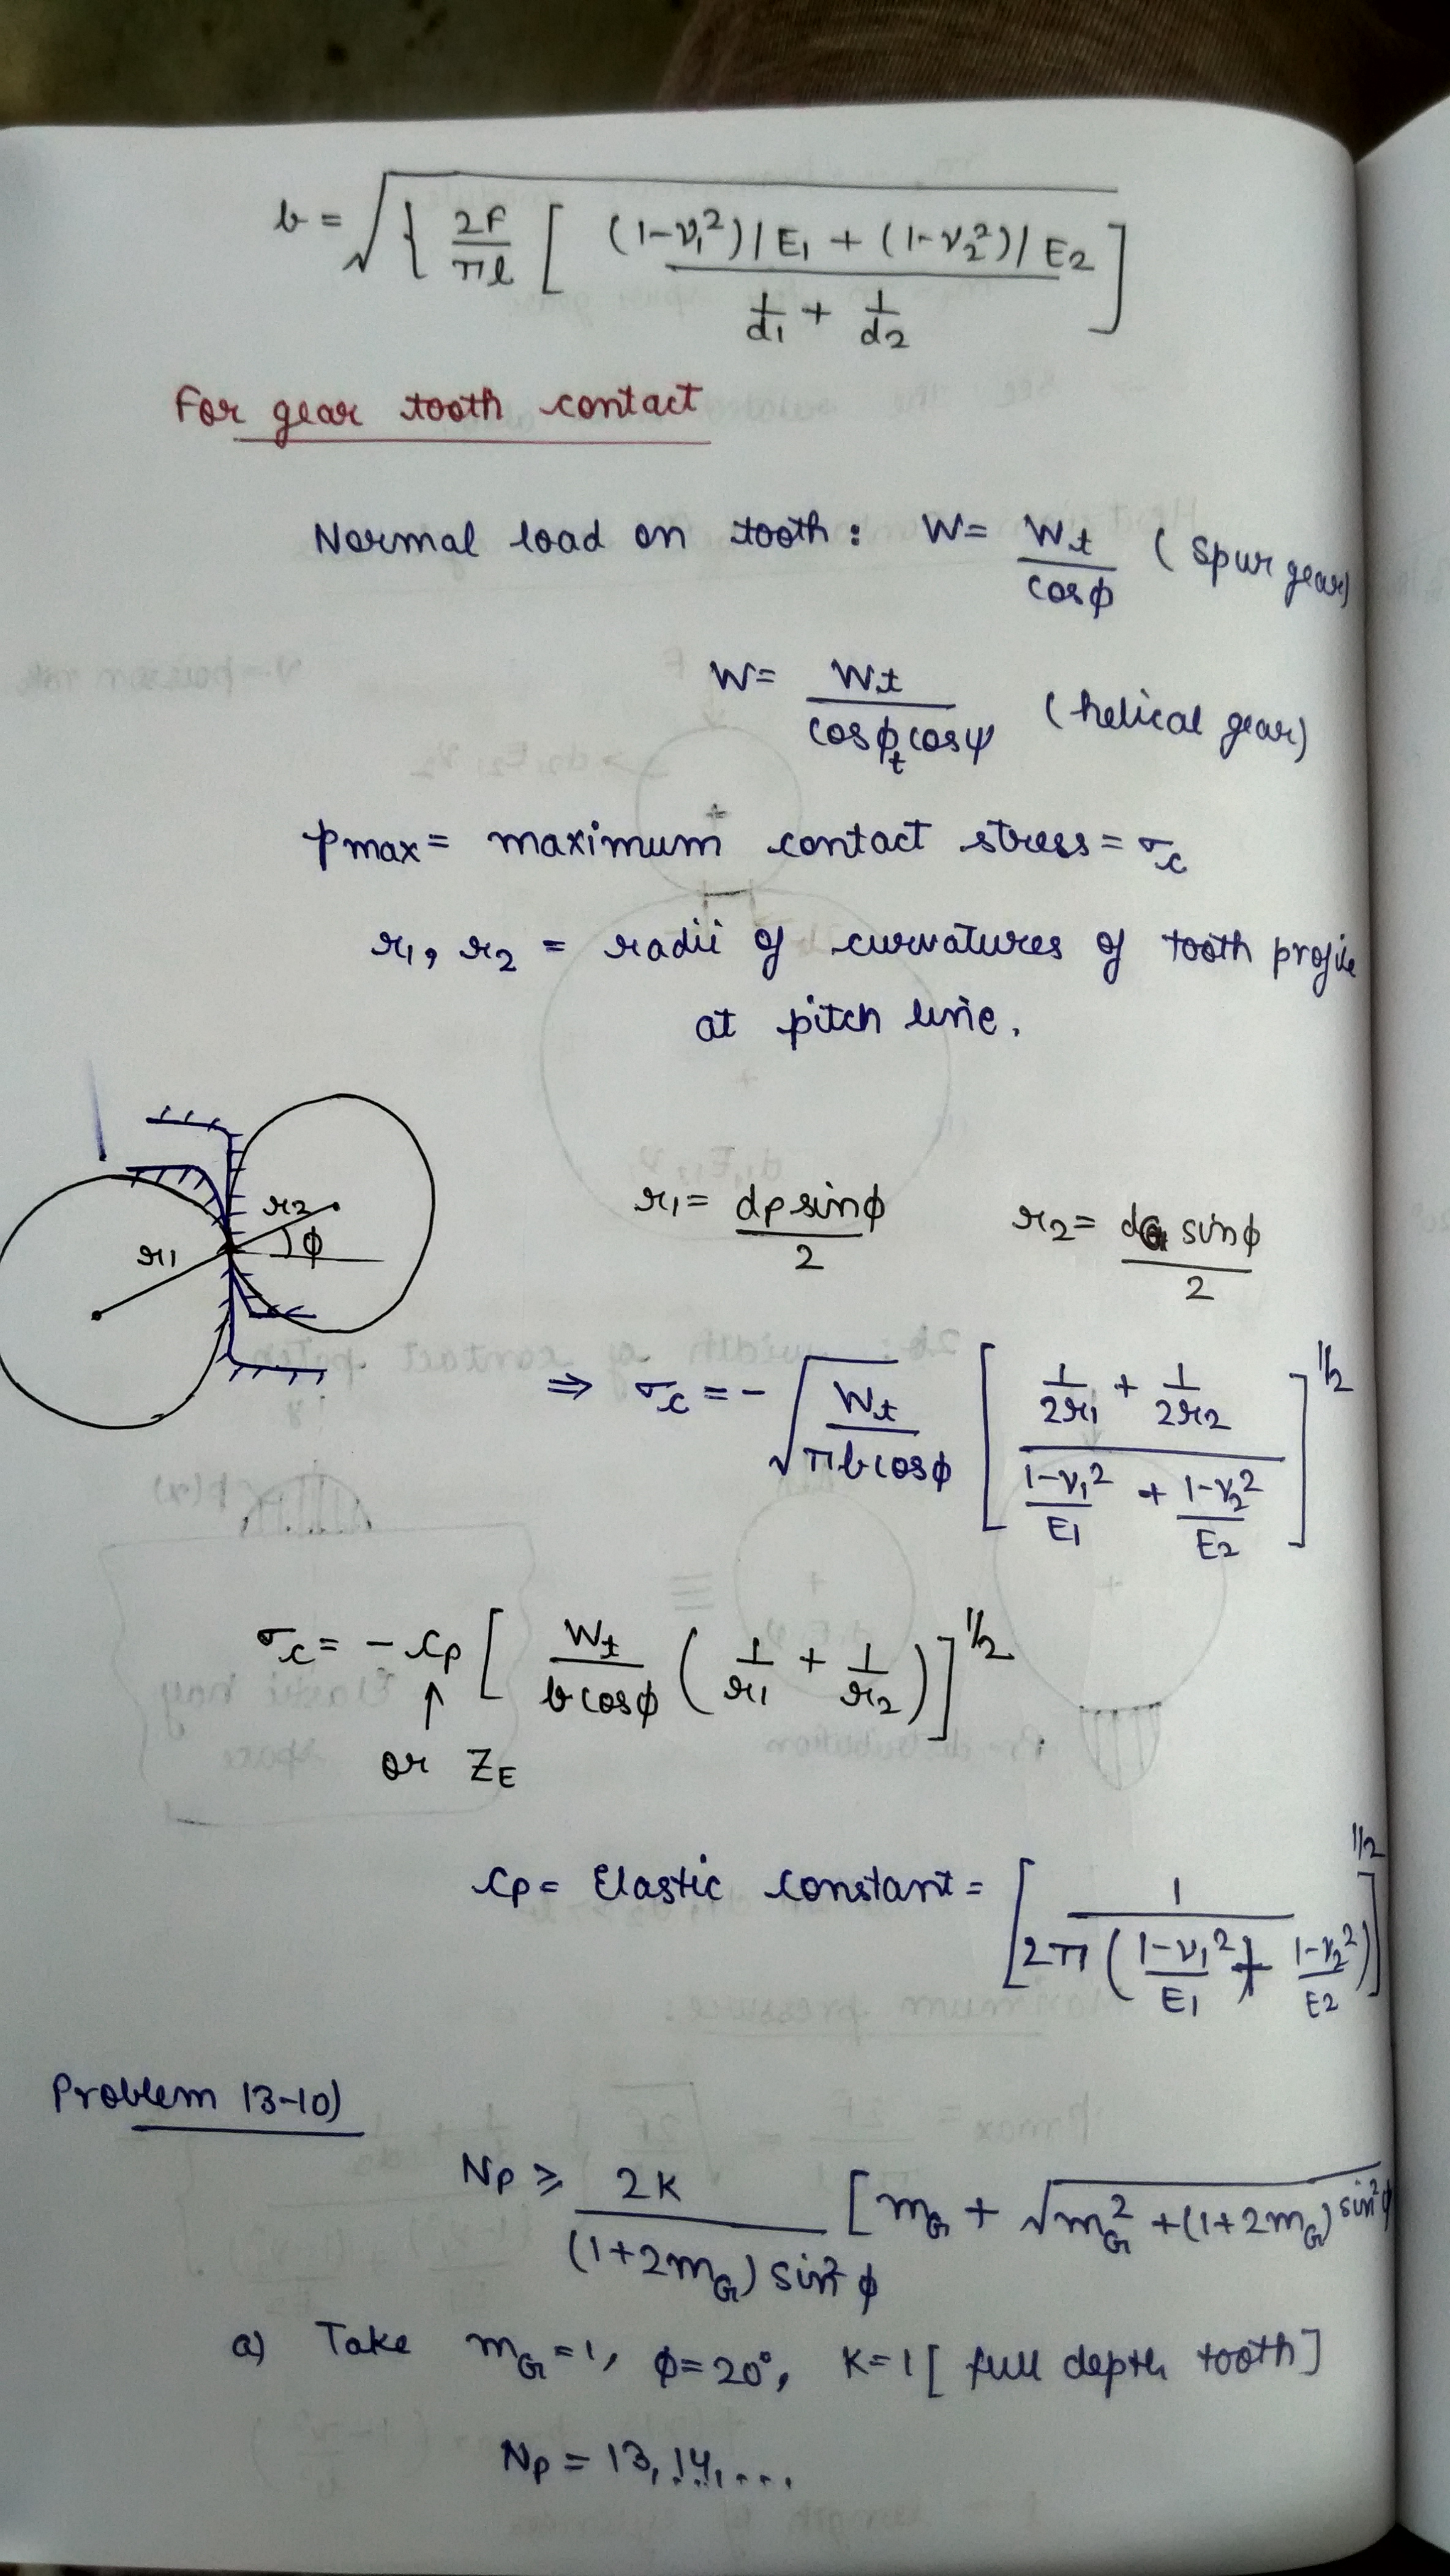 b = √{ 2F/πl [ ((1-ν₁²)/E₁ + (1-ν₂²)/E₂) / (1/d₁ + 1/d₂) ]
For gear tooth contact
Normal load on tooth : W = Wt/cosφ ( Spur gear)
W = Wt/(cosφt cosψ) (helical gear)
pmax = maximum contact stress = σc
r₁, r₂ = radii of curvatures of tooth profile
at pitch line.
r₂
r₁ φ
r₁ = dp sinφ/2 r₂ = dG sinφ/2
⇒ σc = - √(Wt/(πb cosφ)) [ (1/2r₁ + 1/2r₂) / ((1-ν₁²)/E₁ + (1-ν₂²)/E₂) ]^1/2
σc = - Cp [ Wt/(b cosφ) ( 1/r₁ + 1/r₂ ) ]^1/2
↑
or ZE
Cp = Elastic constant = [ 1 / (2π ( (1-ν₁²)/E₁ + (1-ν₂²)/E₂ )) ]^1/2
Problem 13-10)
Np ≥ 2K/((1+2mG) sin²φ) [ mG + √(mG² + (1+2mG) sin²φ
a) Take mG = 1, φ = 20°, K = 1 [ full depth tooth]
Np = 13, 14, ...